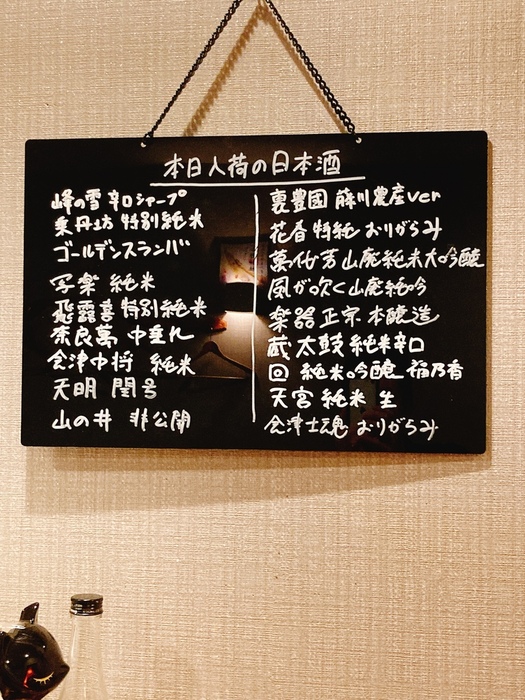 本日入荷の日本酒
峰の雪 辛口シャープ
乗丹坊 特別純米
ゴールデンスランバ
写楽 純米
飛露喜 特別純米
奈良萬 中垂れ
会津中将 純米
天明 閏号
山の井 非公開
裏豊國 藤川農産ver
花春 特純 おりがらみ
萬代芳 山廃純米大吟醸
風が吹く 山廃純吟
楽器正宗 本醸造
蔵太鼓 純米辛口
回 純米吟醸 福乃香
天宮 純米 生
会津士魂 おりがらみ